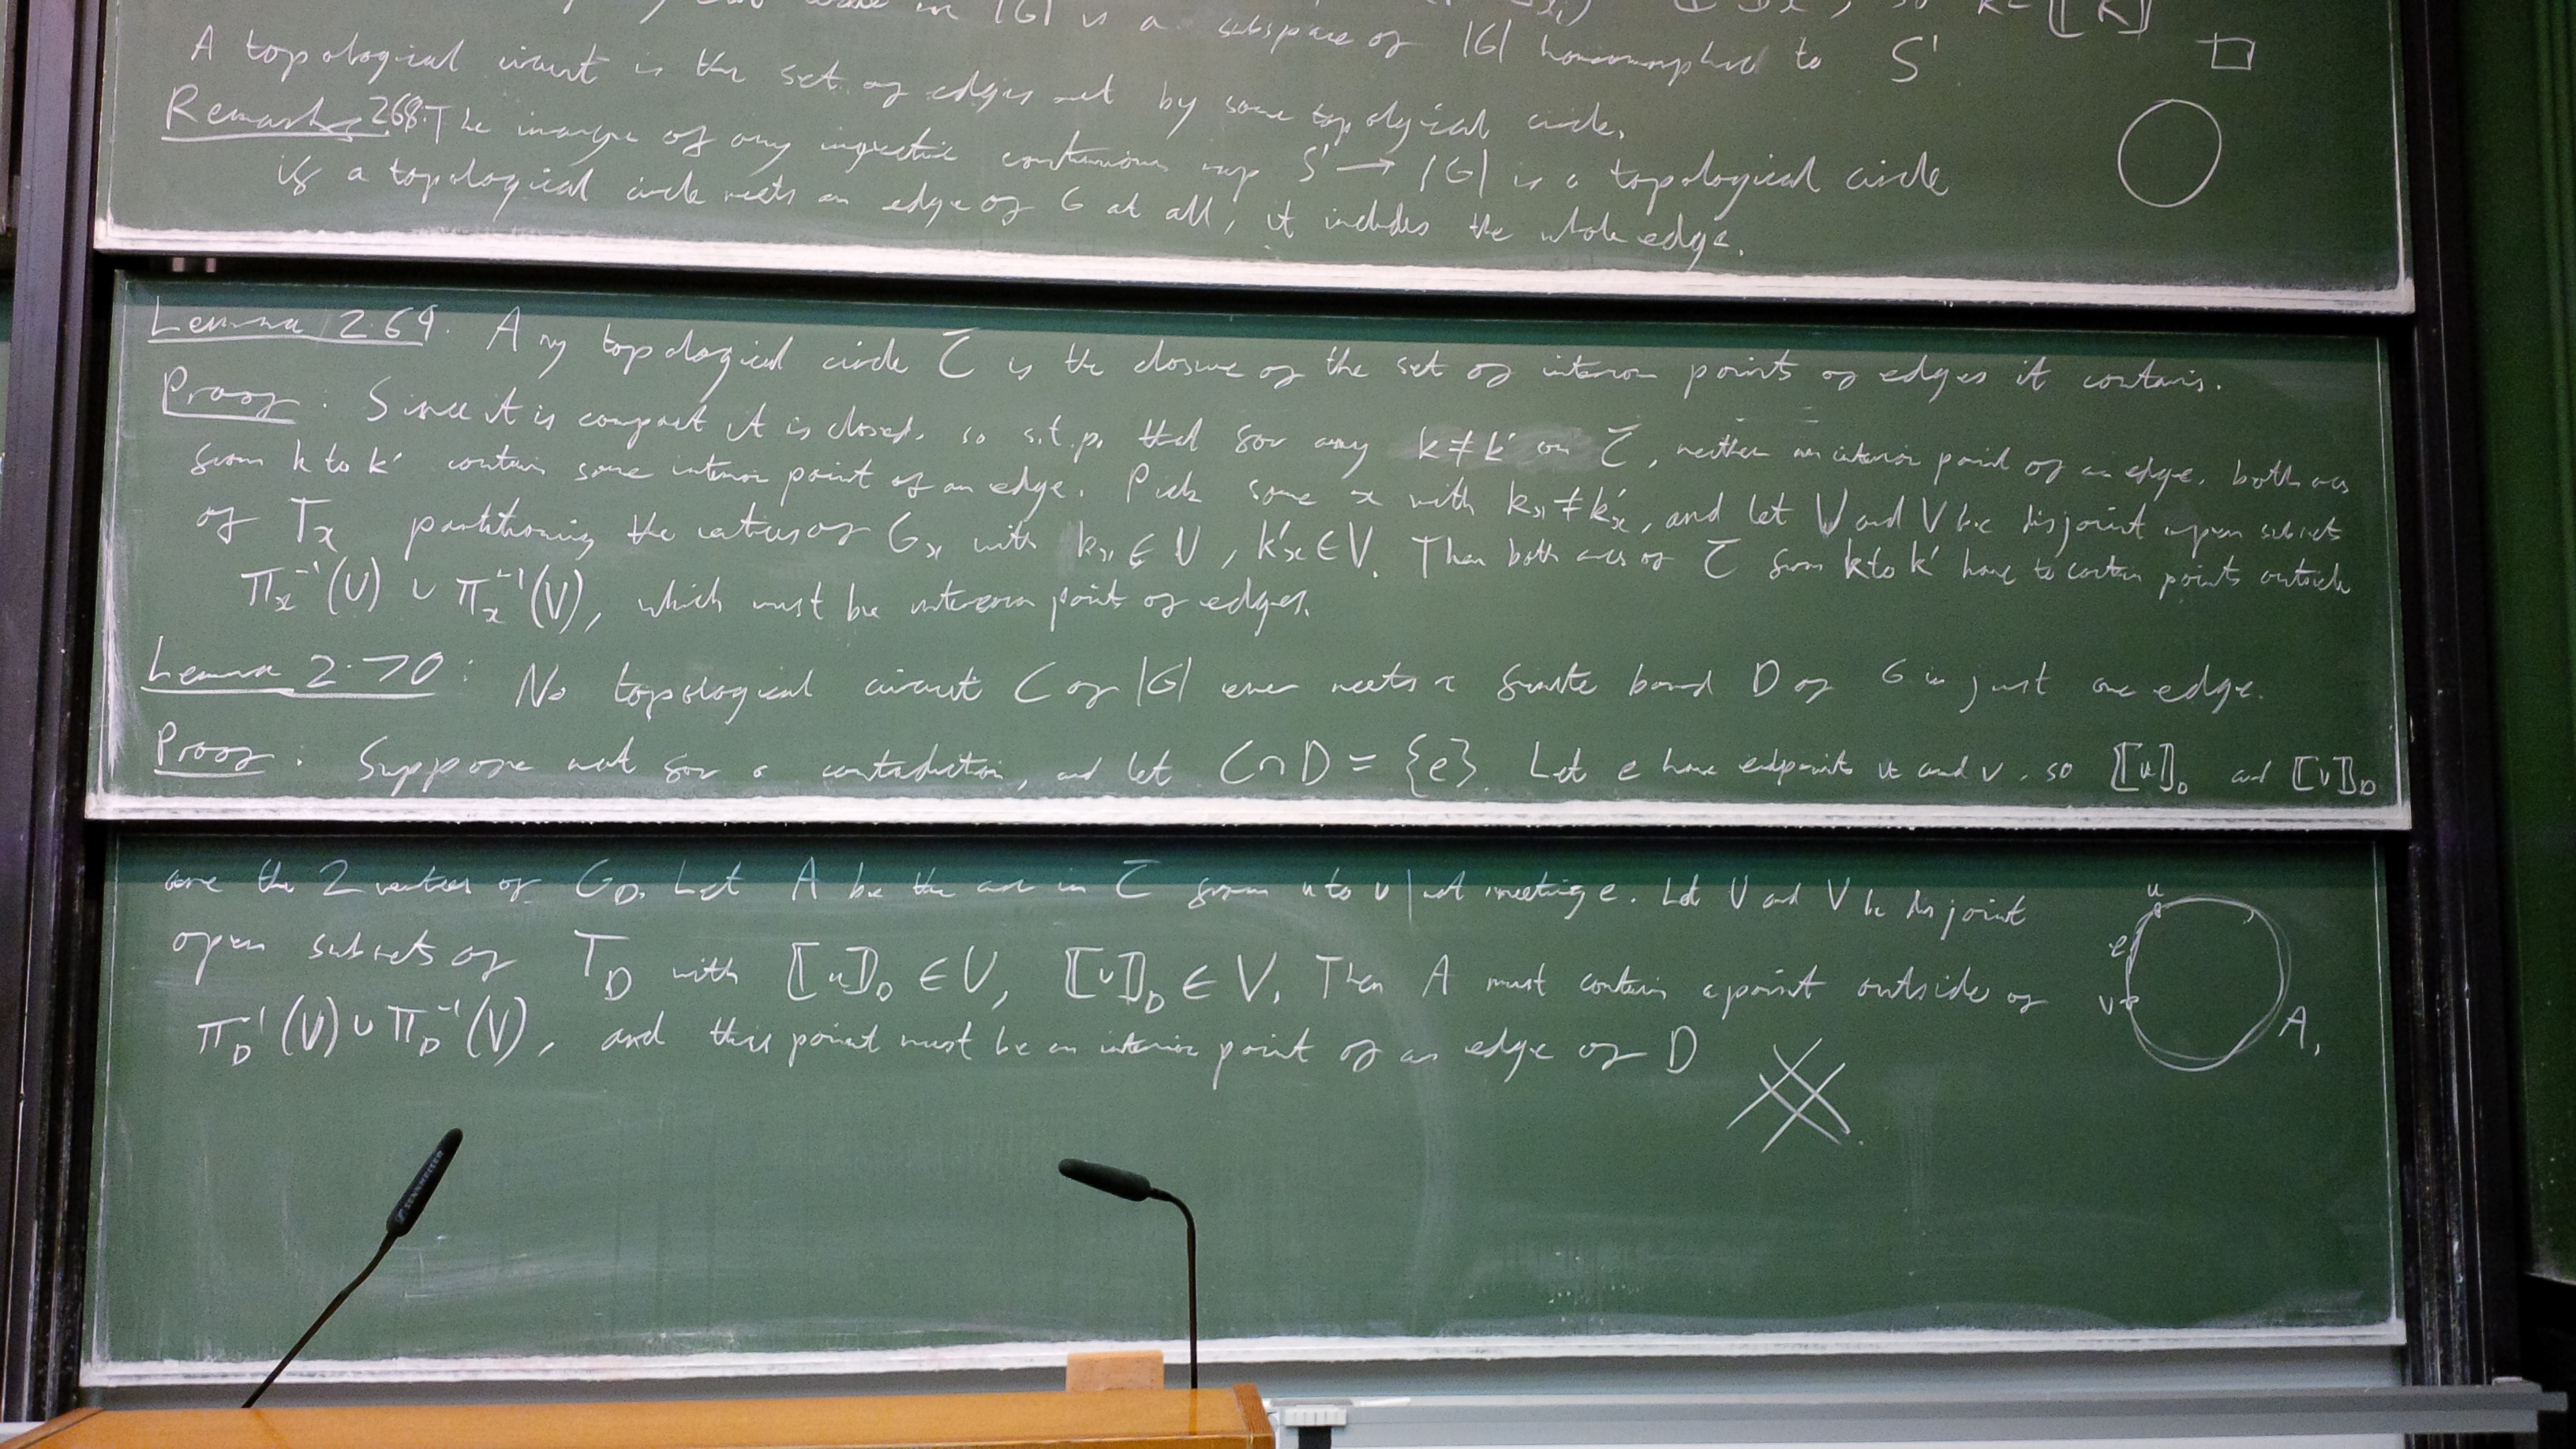 in |G| is a subspace of |G| homeomorphic to S¹
A topological circuit is the set of edges met by some topological circle.
Remarks 2.68: The image of any injective continuous map S¹ → |G| is a topological circle
if a topological circle meets an edge of G at all, it includes the whole edge.
Lemma 2.69. Any topological circle C̄ is the closure of the set of interior points of edges it contains.
Proof: Since it is compact it is closed, so s.t.p. that for any k ≠ k' on C̄, neither an interior point of an edge, both arcs
from k to k' contain some interior point of an edge. Pick some x with kₓ ≠ k'ₓ, and let U and V be disjoint open subsets
of Tₓ partitioning the vertices of Gₓ with kₓ ∈ U, k'ₓ ∈ V. Then both arcs of C̄ from k to k' have to contain points outside
πₓ⁻¹(U) ∪ πₓ⁻¹(V), which must be interior points of edges.
Lemma 2.70: No topological circuit C of |G| ever meets a finite bond D of G in just one edge.
Proof: Suppose not for a contradiction, and let C∩D = {e}. Let e have endpoints u and v, so ⟦u⟧_D and ⟦v⟧_D
are the 2 vertices of G_D. Let A be the arc in C̄ from u to v not meeting e. Let U and V be disjoint
open subsets of T_D with ⟦u⟧_D ∈ U, ⟦v⟧_D ∈ V. Then A must contain a point outside of
π_D⁻¹(U) ∪ π_D⁻¹(V), and this point must be an interior point of an edge of D
u
e
v
A
SENNHEISER